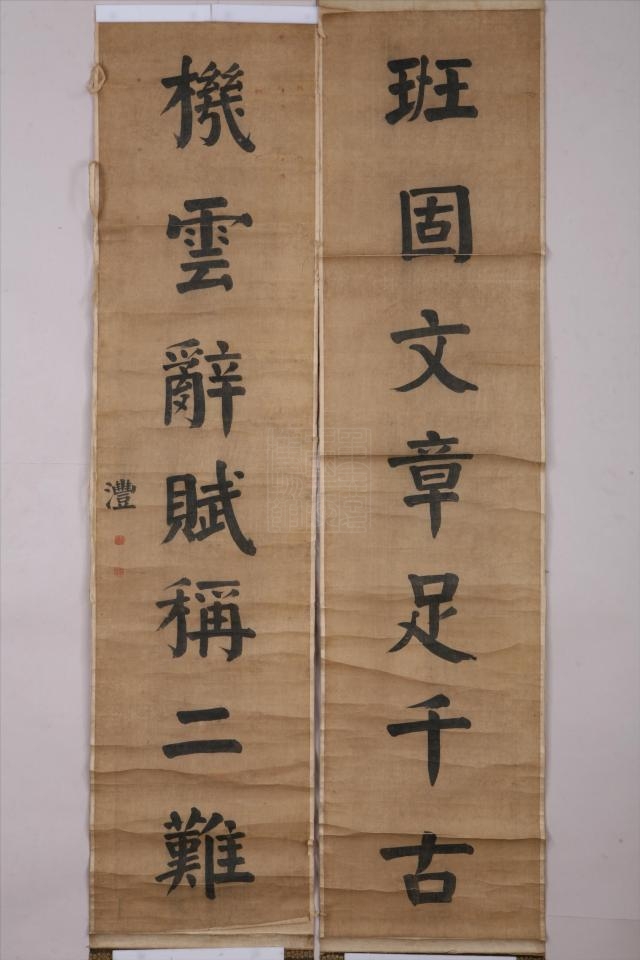 班固文章足千古
機雲辭賦稱二難
灃